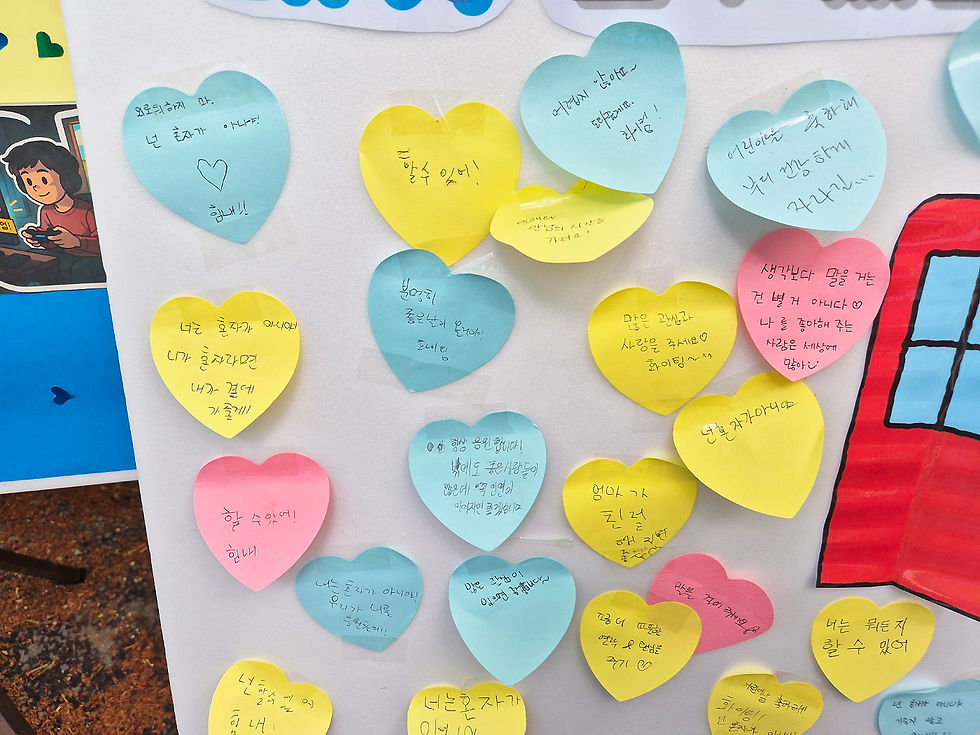 외로워하지 마.
넌 혼자가 아니야!
힘내!!
할 수 있어!
어렵지 않아요~
화이팅!
어린이날 축하해
부디 건강하게
자라길...
만남의 시간을
가져요!
분명히
좋은날이 올거야!
많은 관심과
사랑을 주세요♡
화이팅~
생각보다 말을 거는
건 별 거 아니다♡
나를 좋아해 주는
사람은 세상에
많아
너는 혼자가 아니야
니가 혼자라면
내가 곁에
가줄게!!
넌 혼자가 아니야
항상 응원합니다!
밖에도 좋은사람들이
많은데
엄마가
할 수 있어!
힘내
너는 혼자가 아니야!
우리가 너를
응원할게!
많은 관심이
좀 더 따뜻한
연락 & 안부를
주기♡
말을 걸어
너는 뭐든지
할 수 있어
넌 할 수 있어
힘내!
너는 혼자가
어린이날 축하해!
화이팅!!
넌 혼자가 아니야